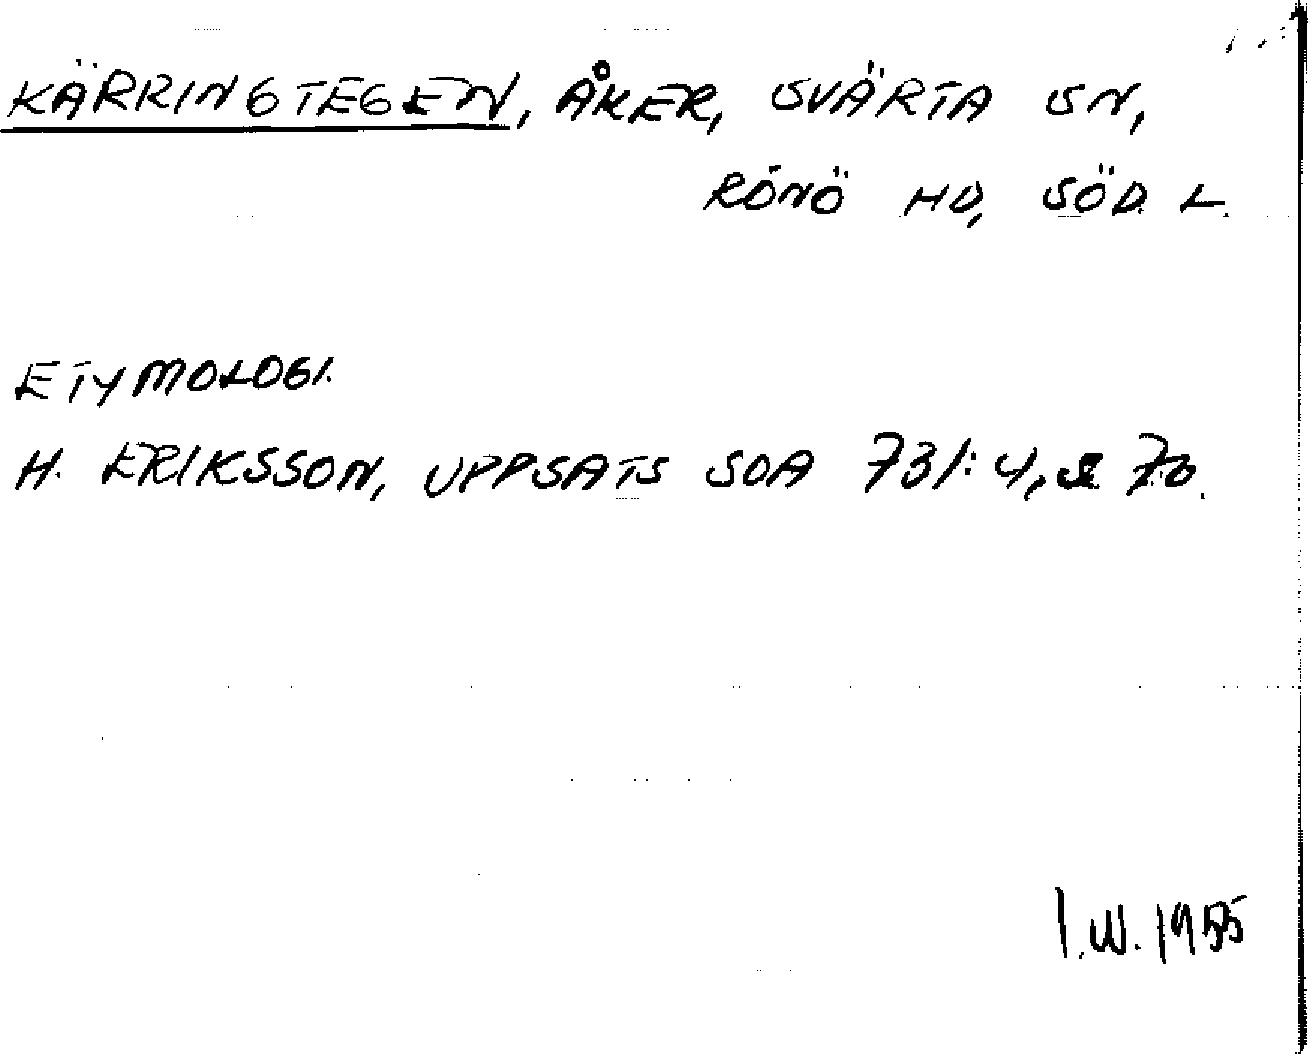 KÄRRINGTEGEN, ÅKER, SVÄRTA SN,
RÖNÖ HD, SÖD. L.
ETYMOLOGI.
H. ERIKSSON, UPPSATS SOA 731:4, s 70.
I.W. 1955